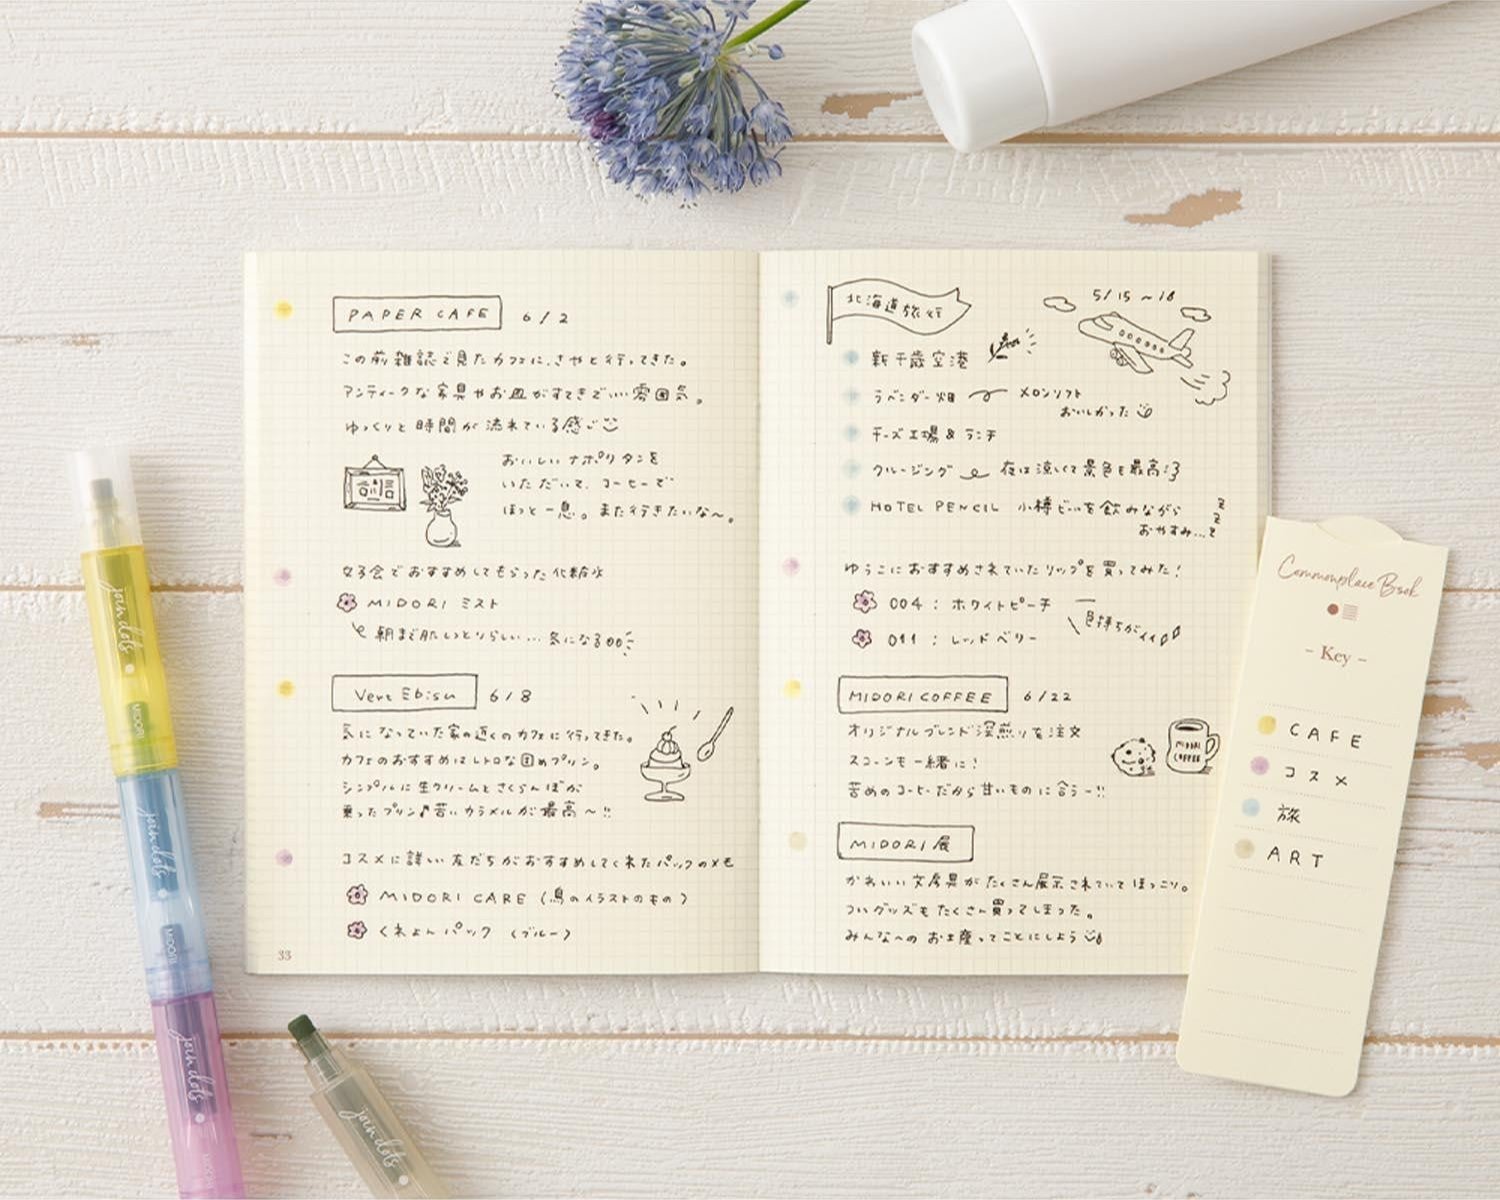 PAPER CAFE 6/2
この前雑誌で見たカフェに、さやと行ってきた。
アンティークな家具やお皿がすてきでいい雰囲気。
ゆっくりと時間が流れている感じ
おいしいナポリタンを
いただいて、コーヒーで
ほっと一息。また行きたいな〜。
女子会でおすすめしてもらった化粧水
MIDORI ミスト
朝まで肌しっとりらしい…気になる
Vert Ebisu 6/8
気になっていた家の近くのカフェに行ってきた。
カフェのおすすめはレトロな固めプリン。
シンプルに生クリームとさくらんぼが
乗ったプリン♪苦いカラメルが最高〜!!
コスメに詳しい友だちがおすすめしてくれたパックのメモ
MIDORI CARE (鳥のイラストのもの)
くれよんパック (ブルー)
33
北海道旅行
5/15〜18
新千歳空港
ラベンダー畑 メロンソフト
おいしかった
チーズ工場 & ランチ
クルージング 夜は涼しくて景色も最高!
HOTEL PENCIL 小樽ビールを飲みながら
おやすみ…
zzz
ゆうこにおすすめされていたリップを買ってみた!
004: ホワイトピーチ
011: レッドベリー
色持ちがイイ
MIDORI COFFEE 6/22
オリジナルブレンド深煎りを注文
スコーンも一緒に!
苦めのコーヒーだから甘いものに合うー!!
MIDORI COFFEE
MIDORI展
かわいい文房具がたくさん展示されていてほっこり。
ついグッズもたくさん買ってしまった。
みんなへのお土産ってことにしよう
Commonplace Book
- Key -
CAFE
コスメ
旅
ART
join dots
MIDORI
join dots
MIDORI
join dots
MIDORI
join dots